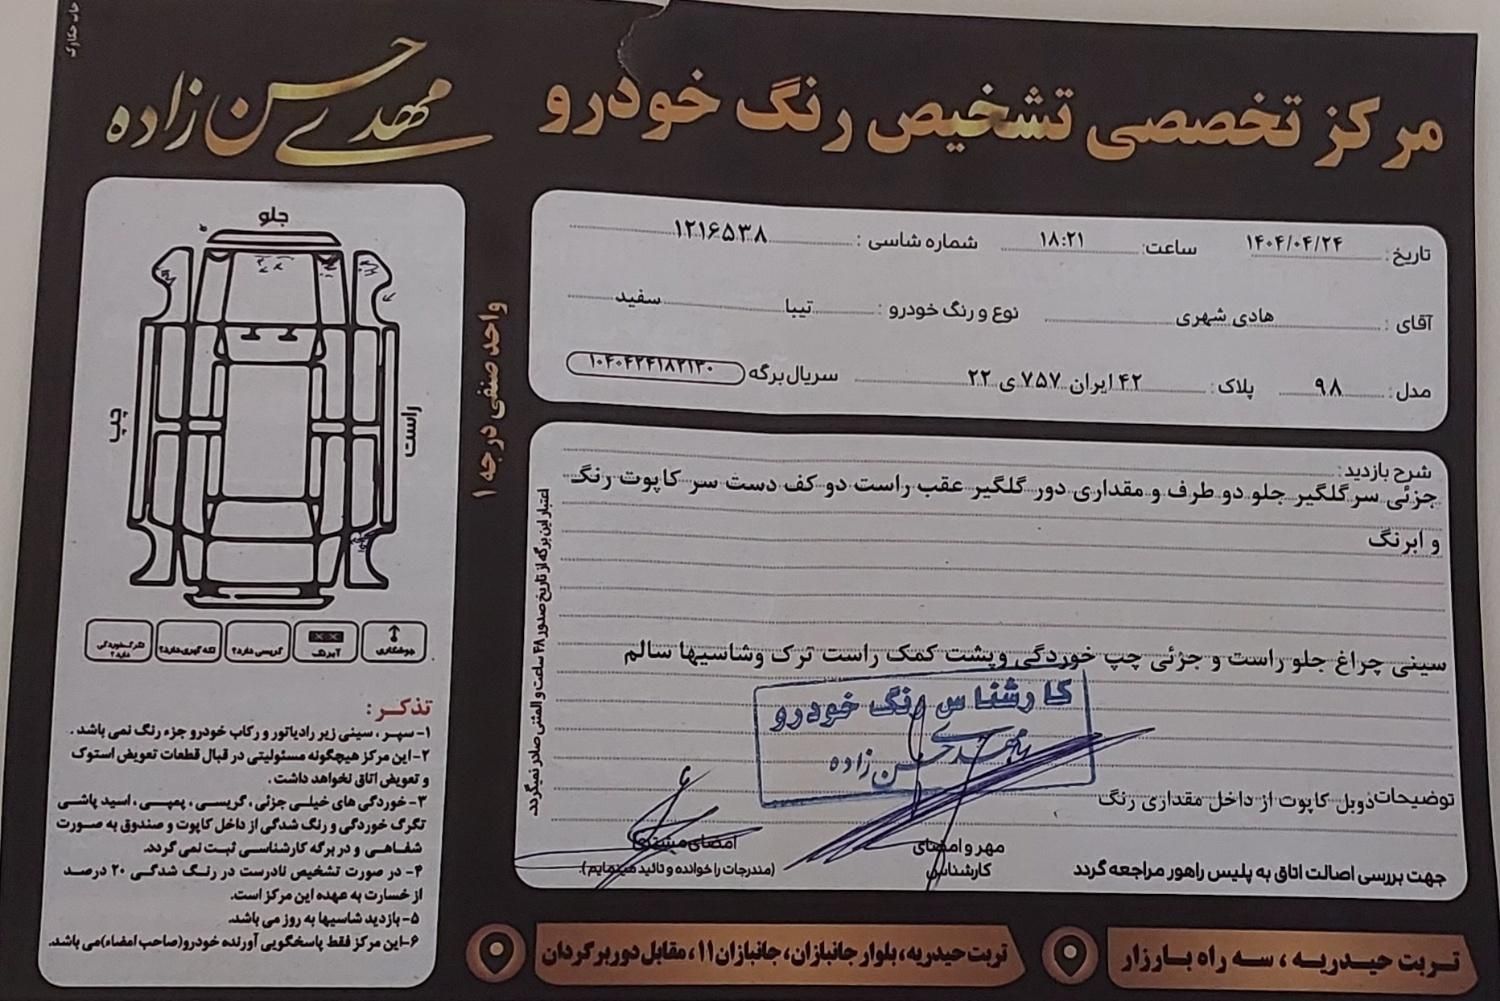 مرکز تخصصی تشخیص رنگ خودرو
مهدی حسن زاده
تاریخ: ۱۴۰۴/۰۴/۲۴ ساعت: ۱۸:۲۱ شماره شاسی: ۱۲۱۶۵۳۸
آقای: هادی شهری نوع و رنگ خودرو: تیبا سفید
مدل: ۹۸ پلاک: ۴۲ ایران ۷۵۷ ی ۲۲ سریال برگه ۱۰۴۰۴۲۴۱۸۲۱۳۰
شرح بازدید:
جزئی سر گلگیر جلو دو طرف و مقداری دور گلگیر عقب راست دو کف دست سر کاپوت رنگ
و ابرنگ
سینی چراغ جلو راست و جزئی چپ خوردگی وپشت کمک راست ترک وشاسیها سالم
کارشناس رنگ خودرو
مهدی حسن زاده
توضیحات دوبل کاپوت از داخل مقداری رنگ
مهر و امضای
کارشناس
امضای مشتری
(مندرجات را خوانده و تائید مینمایم)
جهت بررسی اصالت اتاق به پلیس راهور مراجعه گردد
اعتبار این برگه از تاریخ صدور ۴۸ ساعت و المثنی صادر نمیگردد
واحد صنفی درجه ۱
جلو
چپ
راست
جوشکاری
آبرنگ
گریسی دارد؟
لکه گیری دارد؟
تگرگ خوردگی
دارد؟
تذکر:
۱- سپر، سینی زیر رادیاتور و رکاب خودرو جزء رنگ نمی باشد.
۲- این مرکز هیچگونه مسئولیتی در قبال قطعات تعویض استوک
و تعویض اتاق نخواهد داشت.
۳- خوردگی های خیلی جزئی، گریسی، پمپی، اسید پاشی
تگرگ خوردگی و رنگ شدگی از داخل کاپوت و صندوق به صورت
شفاهی و در برگه کارشناسی ثبت نمی گردد.
۴- در صورت تشخیص نادرست در رنگ شدگی ۲۰ درصد
از خسارت به عهده این مرکز است.
۵- بازدید شاسیها به روز می باشد.
۶- این مرکز فقط پاسخگویی آورنده خودرو(صاحب امضاء)می باشد.
تربت حیدریه، سه راه بارزار
تربت حیدریه، بلوار جانبازان، جانبازان ۱۱، مقابل دوربرگردان